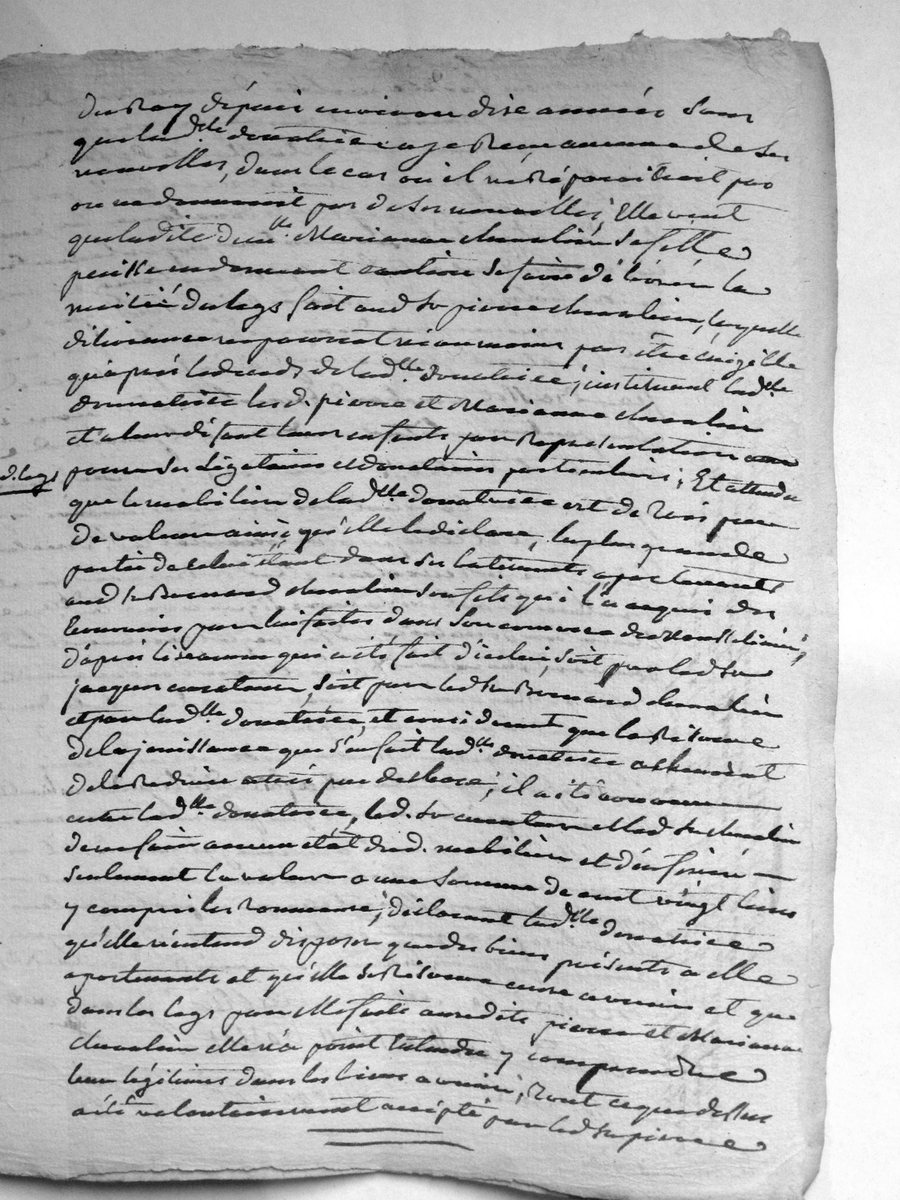 du Roy dépuis environ dixe années sans
que lad. dlle donatrice aye Reçu aucune de ses
nouvelles, dans le cas où il ne Réparoitroit pas
ou ne donneroit pas de ses nouvelles; Elle veut
que ladite dem.lle Marianne chevalier sa fille
puisse en donnant caution se faire délivrer la
moitié du legs fait aud Sr pierre chevalier, laquelle
délivrance ne pourrat néanmoins pas être éxigée
qu'après le déceds de lad.lle donatrice; instituant lad.lle
donatrice les d. pierre et Marianne chevalier
et à leur défaut leurs enfants par Représentation
pour ses Légataires et donataires particuliers; Et attendu
d. legs
que le mobilier de lad.lle donatrice est de très peu
de valeur ainsi qu'elle le déclare, la plus grande
partie de celui étant dans ses batiments apartenants
aud Sr Bernard chevalier son fils qui l'a acquis des
Economies par lui faites dans son commerce
d'après l'examen qui a été fait d'icelui, soit par led Sr
jacques, soit par led Sr Bernard chevalier
et par lad.lle donatrice, et considérant que la Réserve
de la jouissance que s'en fait lad.lle donatrice
de la Réduire à très peu de chose; il a été convenu
entre lad.lle donatrice, led. Sr et led Sr chevalier
de ne faire aucun état dud. mobilier et d'en fixer
seulement la valeur a une somme de cent vingt livres
y compris les; déclarant lad.lle donatrice
qu'elle n'entend disposer que des biens présents a elle
apartenants et qu'elle se Réserve ceux a venir et que
dans les legs par elle faits auxdits pierre et Marianne
chevalier elle n'a point entendu y comprendre
leur légitimes dans les biens a venir; tout ce que dessus
a été volontairement accepté par led Sr pierre